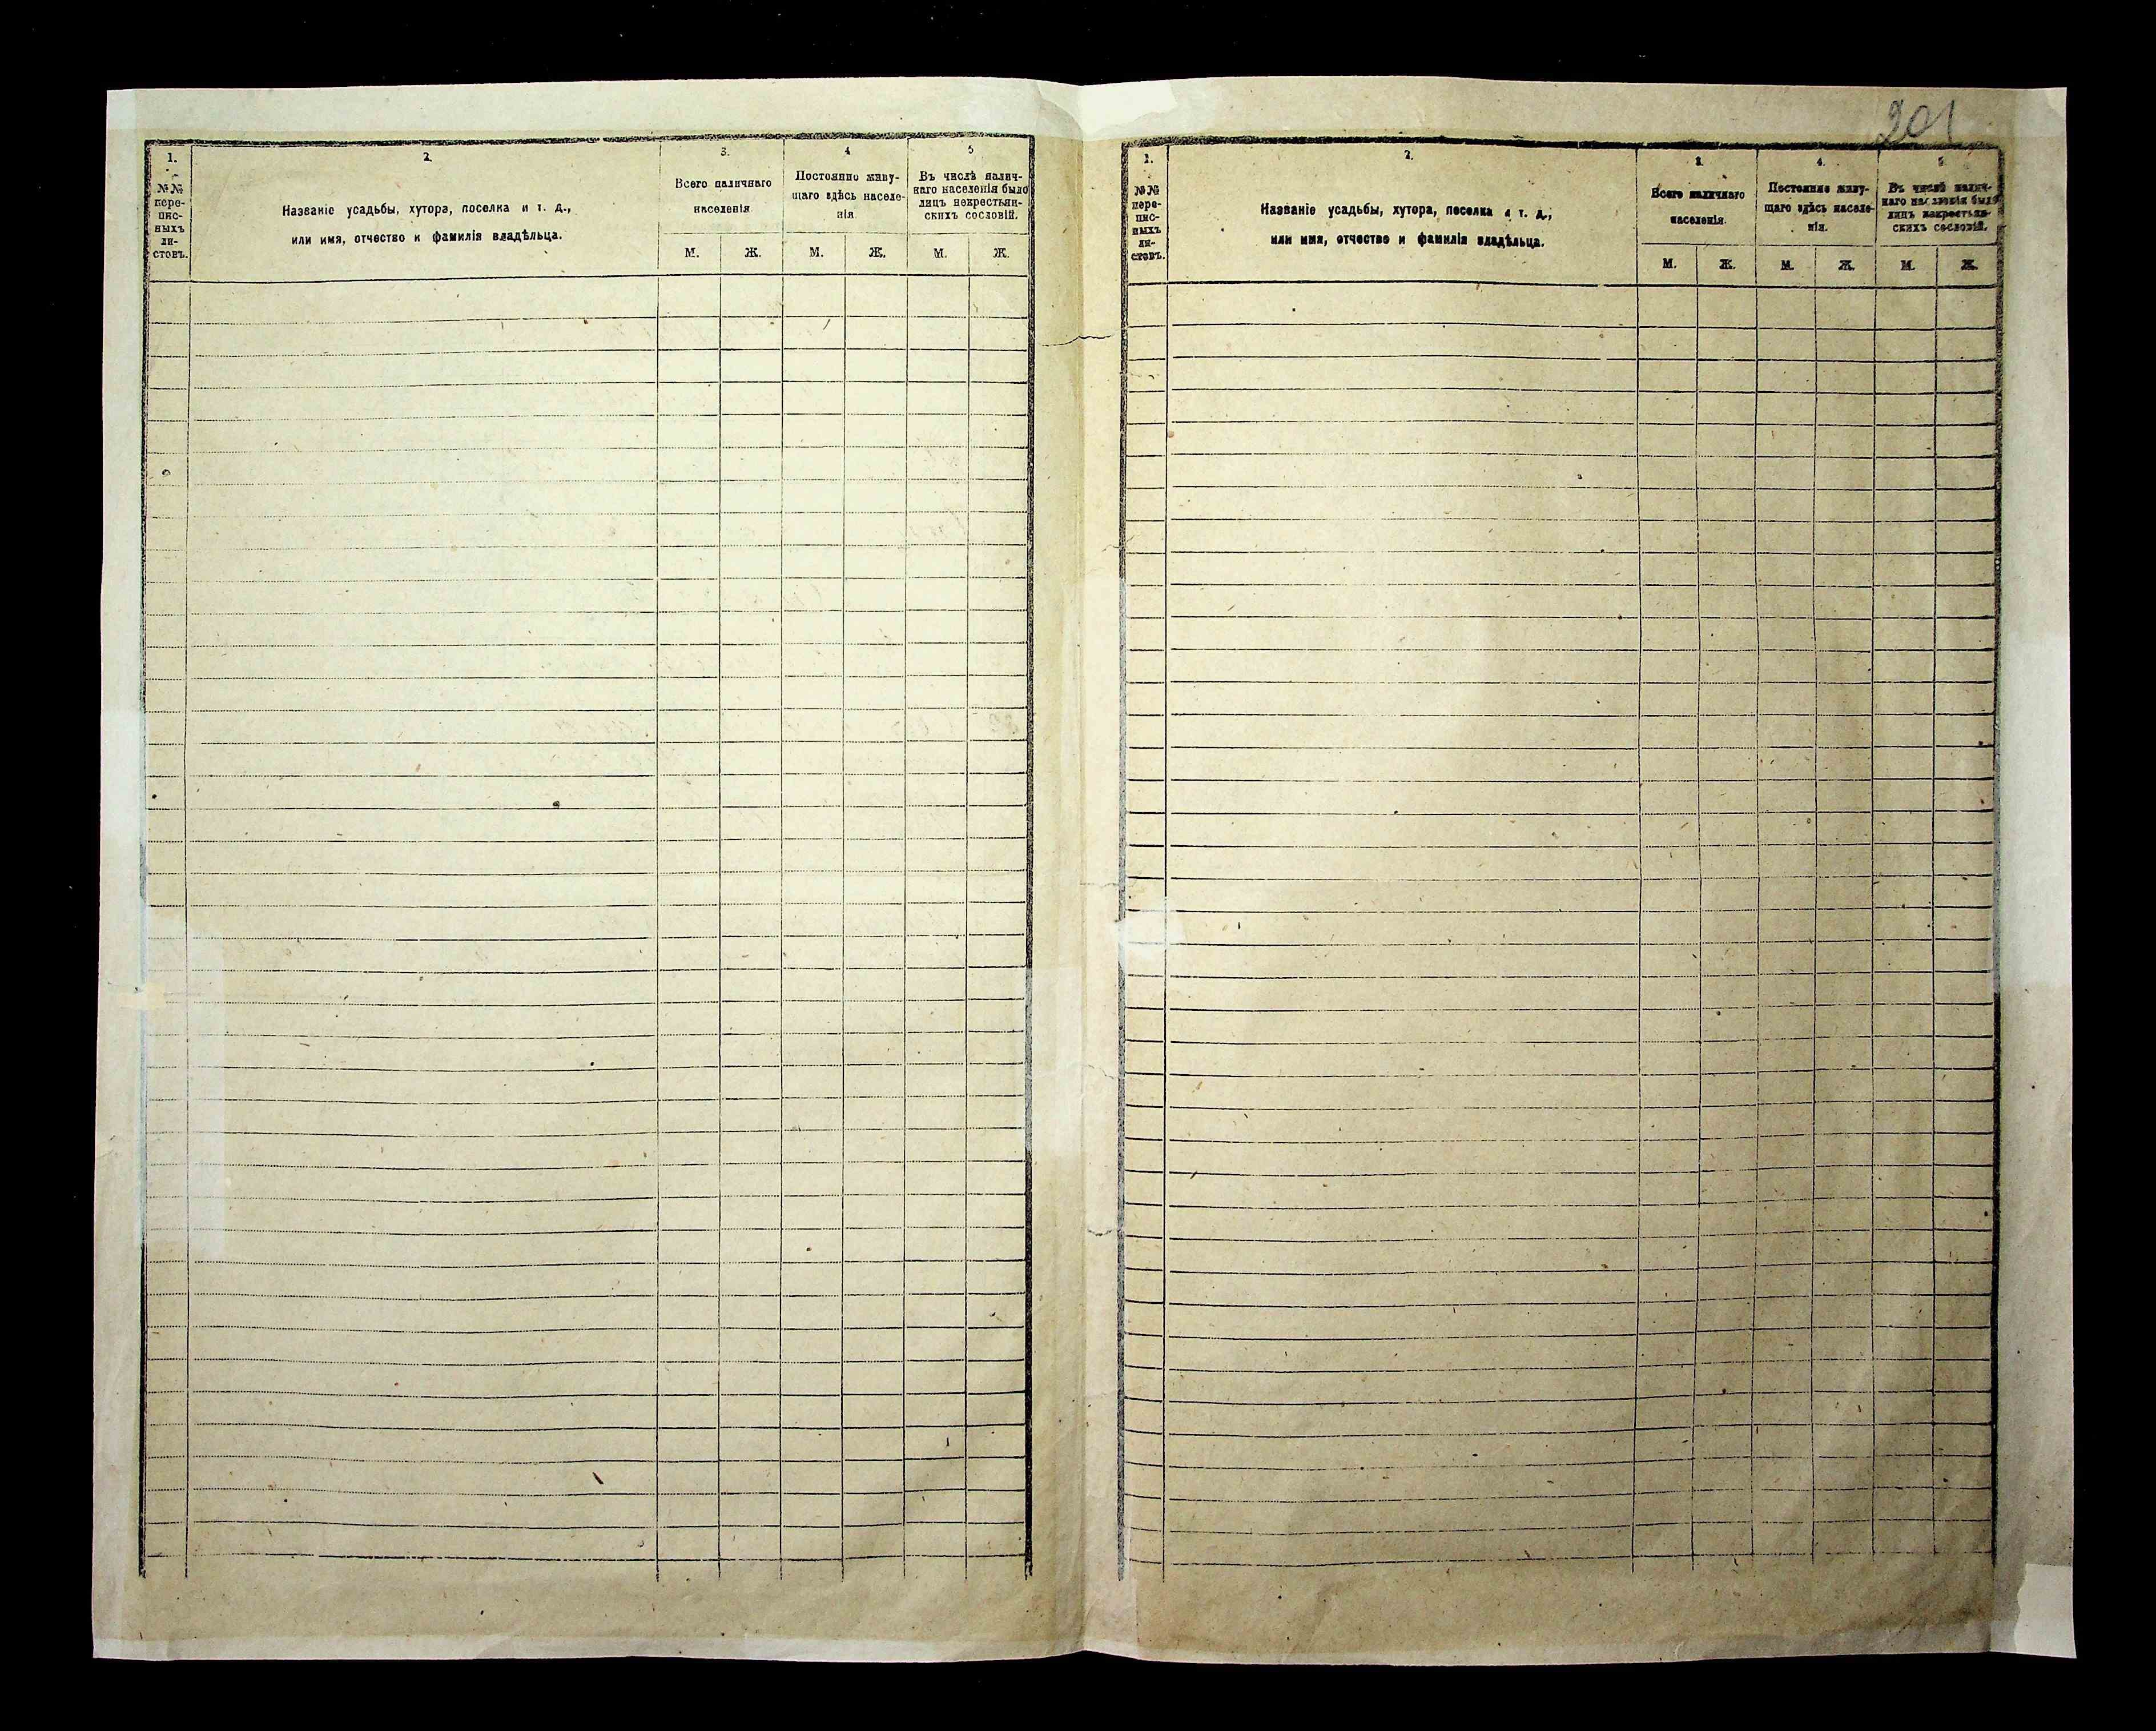 201
1.
№№
пере-
пис-
ныхъ
ли-
стовъ.
2.
Названіе усадьбы, хутора, поселка и т. д.,
или имя, отчество и фамилія владѣльца.
3.
Всего наличнаго
населенія.
М.
Ж.
4
Постоянно живу-
щаго здѣсь населе-
нія
М.
Ж.
5
Въ числѣ налич-
наго населенія было
лицъ некрестьян-
скихъ сословій.
М.
Ж.
1.
№№
пере-
пис-
ныхъ
ли-
стовъ.
2.
Названіе усадьбы, хутора, поселка и т. д.,
или имя, отчество и фамилія владѣльца.
3.
Всего наличнаго
населенія.
М.
Ж.
4.
Постоянно живу-
щаго здѣсь населе-
нія.
М.
Ж.
5.
Въ числѣ налич-
наго населенія было
лицъ некрестьян-
скихъ сословій.
М.
Ж.